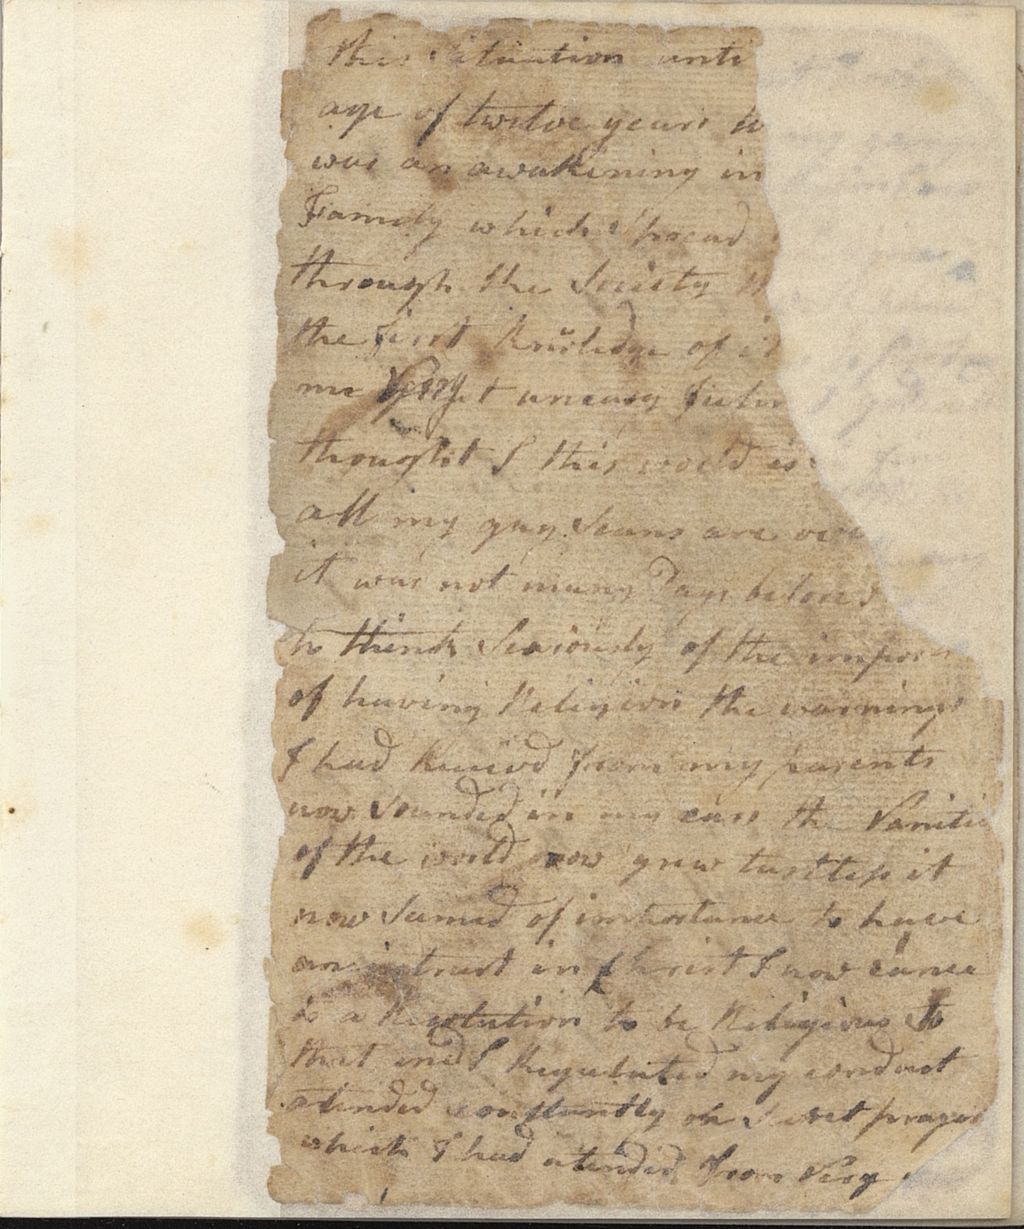 this situation unti
age of twelve years w
was an awakening in
Family which spread
through the Society th
the first knowledge of it
me uneasy feelin
thought I this world is
all my gay Seans are ove
it was not many Days before I
to think Seariously of the impor
of having Religion the warnings
I had Receivd from my parents
now Sounded in my ears the Vanitie
of the world now grew tastless it
now Seemed of importance to have
an intrust in Christ I now came
to a Resolution to be Religious to
that end I Regulated my conduct
atended constantly on Secret prayer
which I had atended from Very